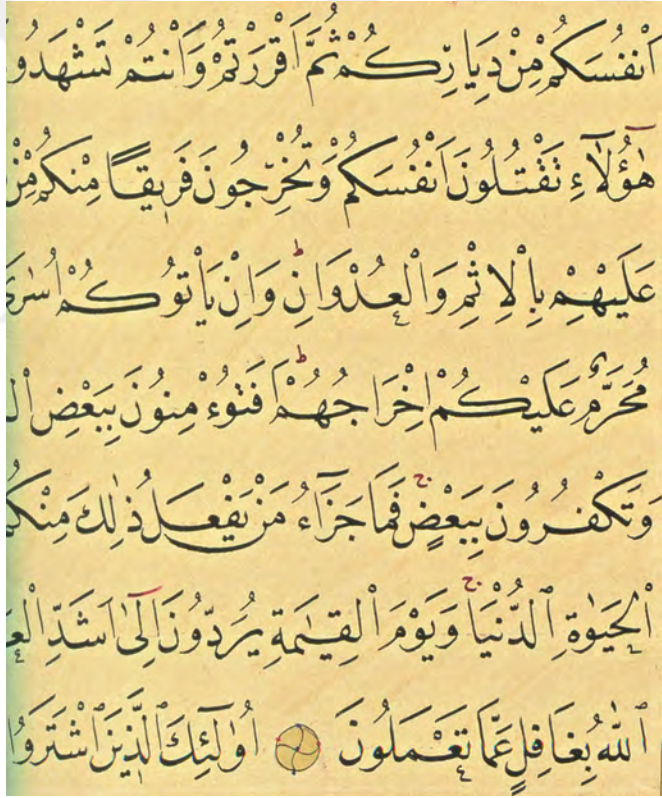 اَنْفُسَكُمْ مِنْ دِيَارِكُمْ ثُمَّ اَقْرَرْتُمْ وَاَنْتُمْ تَشْهَدُو
هٰٓؤُلَٓاءِ تَقْتُلُونَ اَنْفُسَكُمْ وَتُخْرِجُونَ فَرِيقًا مِنْكُمْ مِنْ
عَلَيْهِمْ بِالْاِثْمِ وَالْعُدْوَانِۜ وَاِنْ يَأْتُوكُمْ اُسَارٰى
مُحَرَّمٌ عَلَيْكُمْ اِخْرَاجُهُمْۜ اَفَتُؤْمِنُونَ بِبَعْضِ الْ
وَتَكْفُرُونَ بِبَعْضٍۚ فَمَا جَزَٓاءُ مَنْ يَفْعَلُ ذٰلِكَ مِنْكُمْ
الْحَيٰوةِ الدُّنْيَاۚ وَيَوْمَ الْقِيٰمَةِ يُرَدُّونَ اِلٰٓى اَشَدِّ الْعَ
اللّٰهُ بِغَافِلٍ عَمَّا تَعْمَلُونَ اُو۬لٰٓئِكَ الَّذِينَ اشْتَرَوُا